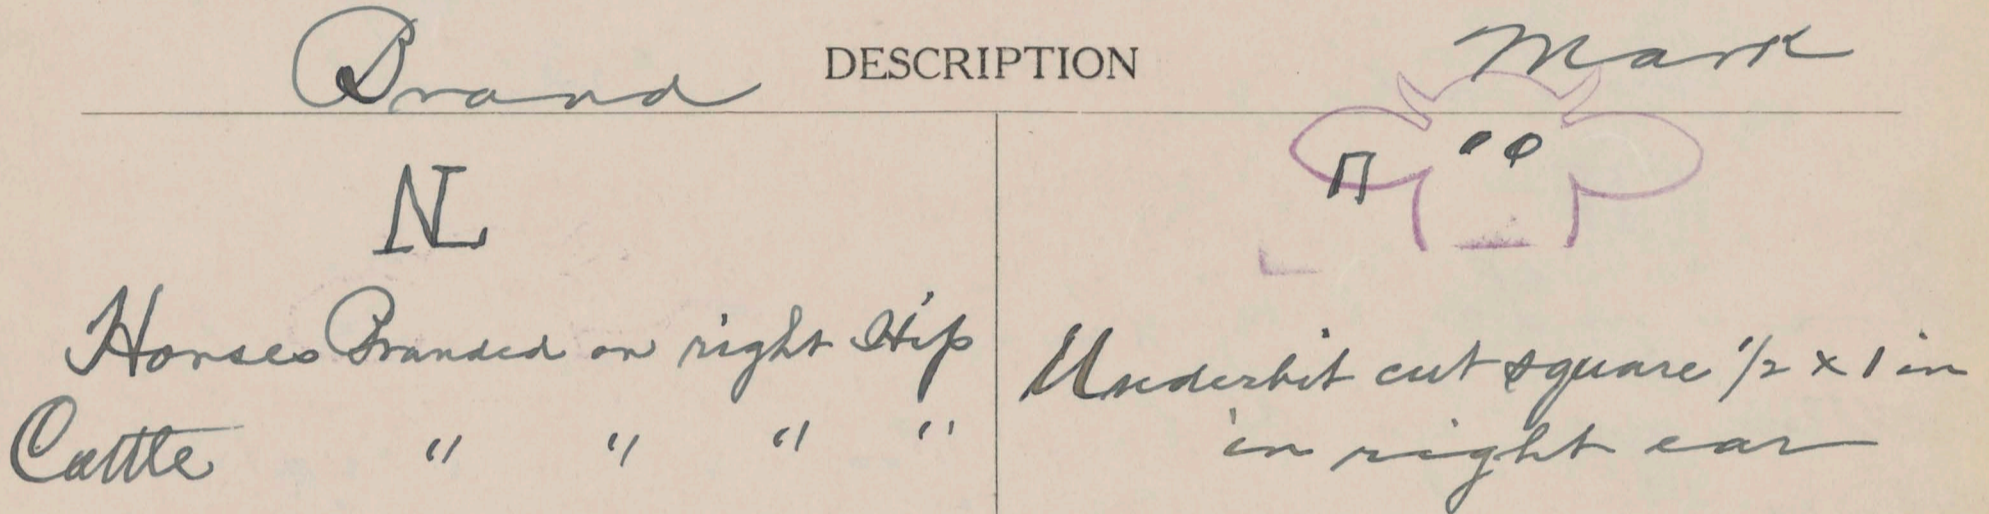 Brand DESCRIPTION Mark
NL
Horses Branded on right Hip
Cattle " " " "
Underbit cut square 1/2 x 1 in
in right ear